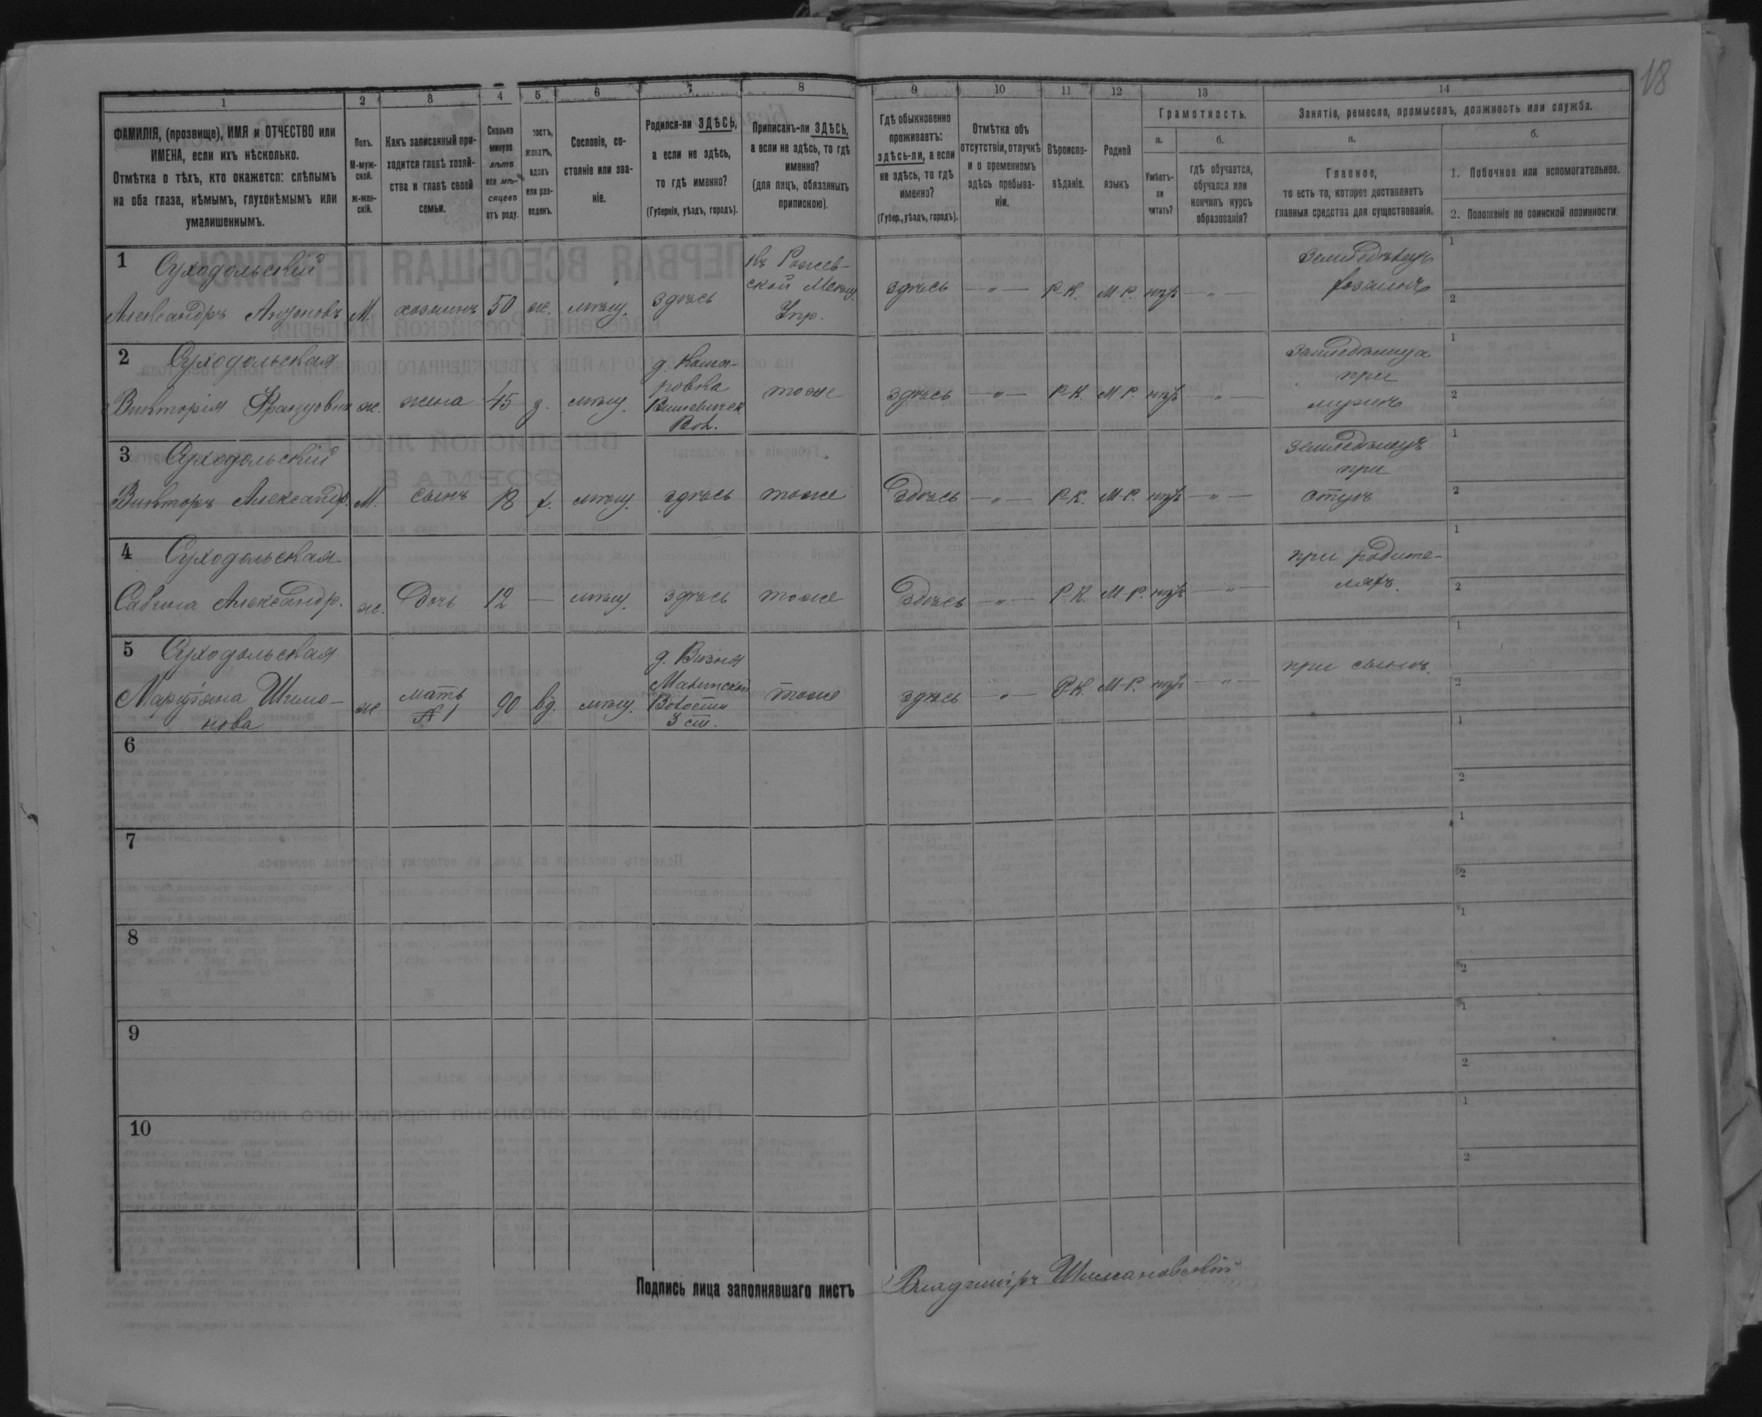 18
1 2 3 4 5 6 7 8 9 10 11 12 13 14
ФАМИЛІЯ, (прозвище), ИМЯ и ОТЧЕСТВО или ИМЕНА, если ихъ нѣсколько.
Отмѣтка о тѣхъ, кто окажется: слѣпымъ на оба глаза, нѣмымъ, глухонѣмымъ или умалишеннымъ.
Полъ.
М-мужской.
Ж-женскій.
Какъ записанный приходится главѣ хозяйства и главѣ своей семьи.
Сколько минуло лѣтъ или мѣсяцевъ отъ роду.
холостъ, женатъ, вдовъ или разведенъ.
Сословіе, состояніе или званіе.
Родился-ли ЗДѢСЬ,
а если не здѣсь,
то гдѣ именно?
(Губернія, уѣздъ, городъ).
Приписанъ-ли ЗДѢСЬ,
а если не здѣсь, то гдѣ именно?
(для лицъ, обязанныхъ припискою).
Гдѣ обыкновенно проживаетъ:
здѣсь-ли, а если не здѣсь, то гдѣ именно?
(Губер., уѣздъ, городъ).
Отмѣтка объ отсутствіи, отлучкѣ и о временномъ здѣсь пребываніи.
Вѣроисповѣданіе.
Родной языкъ.
Грамотность.
а.
Умѣетъ-ли читать?
б.
Гдѣ обучается, обучался или кончилъ курсъ образованія?
Занятіе, ремесло, промыселъ, должность или служба.
а.
Главное,
то есть то, которое доставляетъ главныя средства для существованія.
б.
1. Побочное или вспомогательное.
2. Положеніе по воинской повинности.
1 Суходольскій
Александръ Антоновъ М. хозяинъ 50 ж. мѣщ. здѣсь
Мѣщ.
Упр.
здѣсь —"— Р.К. М-Р. нѣтъ —"—
Земледѣлецъ
хозяинъ
1
2
2 Суходольская
Викторія Францовна ж. жена 45 з. мѣщ.
Вол.
тоже здѣсь —"— Р.К. М-Р. нѣтъ —"—
при
мужѣ
1
2
3 Суходольскій
Викторъ Александр. М. сынъ 18 х. мѣщ. здѣсь тоже здѣсь —"— Р.К. М-Р. нѣтъ —"—
Земледѣлецъ
при
отцѣ
1
2
4 Суходольская
Сабина Александр. ж. Дочь 12 — мѣщ. здѣсь тоже здѣсь —"— Р.К. М-Р. нѣтъ —"—
при родите-
ляхъ.
1
2
5 Суходольская
Марціяна Шимо-
нова ж. мать
№ 1 90 вд. мѣщ.
д. Визня
Махинской
Волости
3 ст.
тоже здѣсь —"— Р.К. М-Р. нѣтъ —"—
при сынѣ.
1
2
6
1
2
7
1
2
8
1
2
9
1
2
10
1
2
Подпись лица заполнявшаго листъ Владиміръ Шимановскій